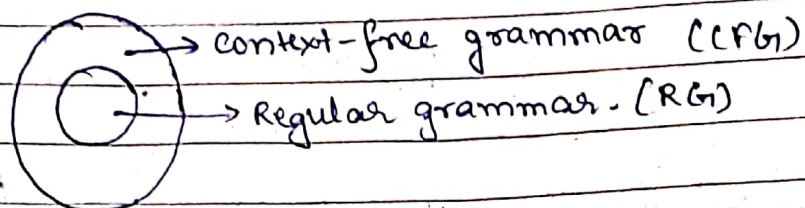 → context-free grammar (CFG)
→ Regular grammar. (RG)